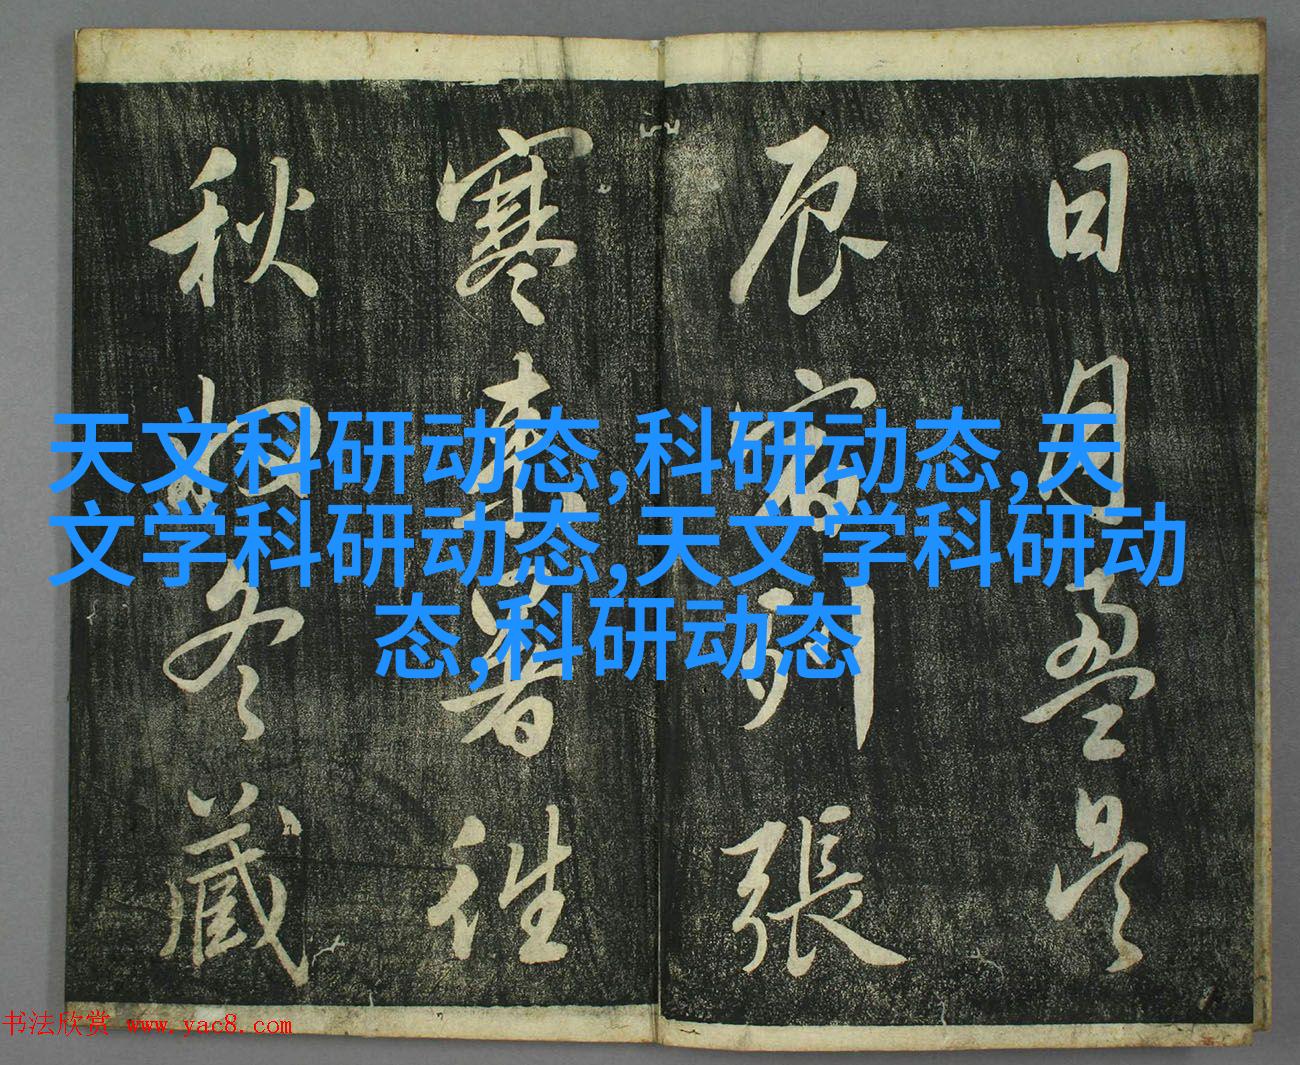 日月盈昃
辰宿列張
寒來暑往
秋收冬藏
天文科研动态,科研动态,天
文学科研动态,天文学科研动
态,科研动态
书法欣赏 www.yac8.com